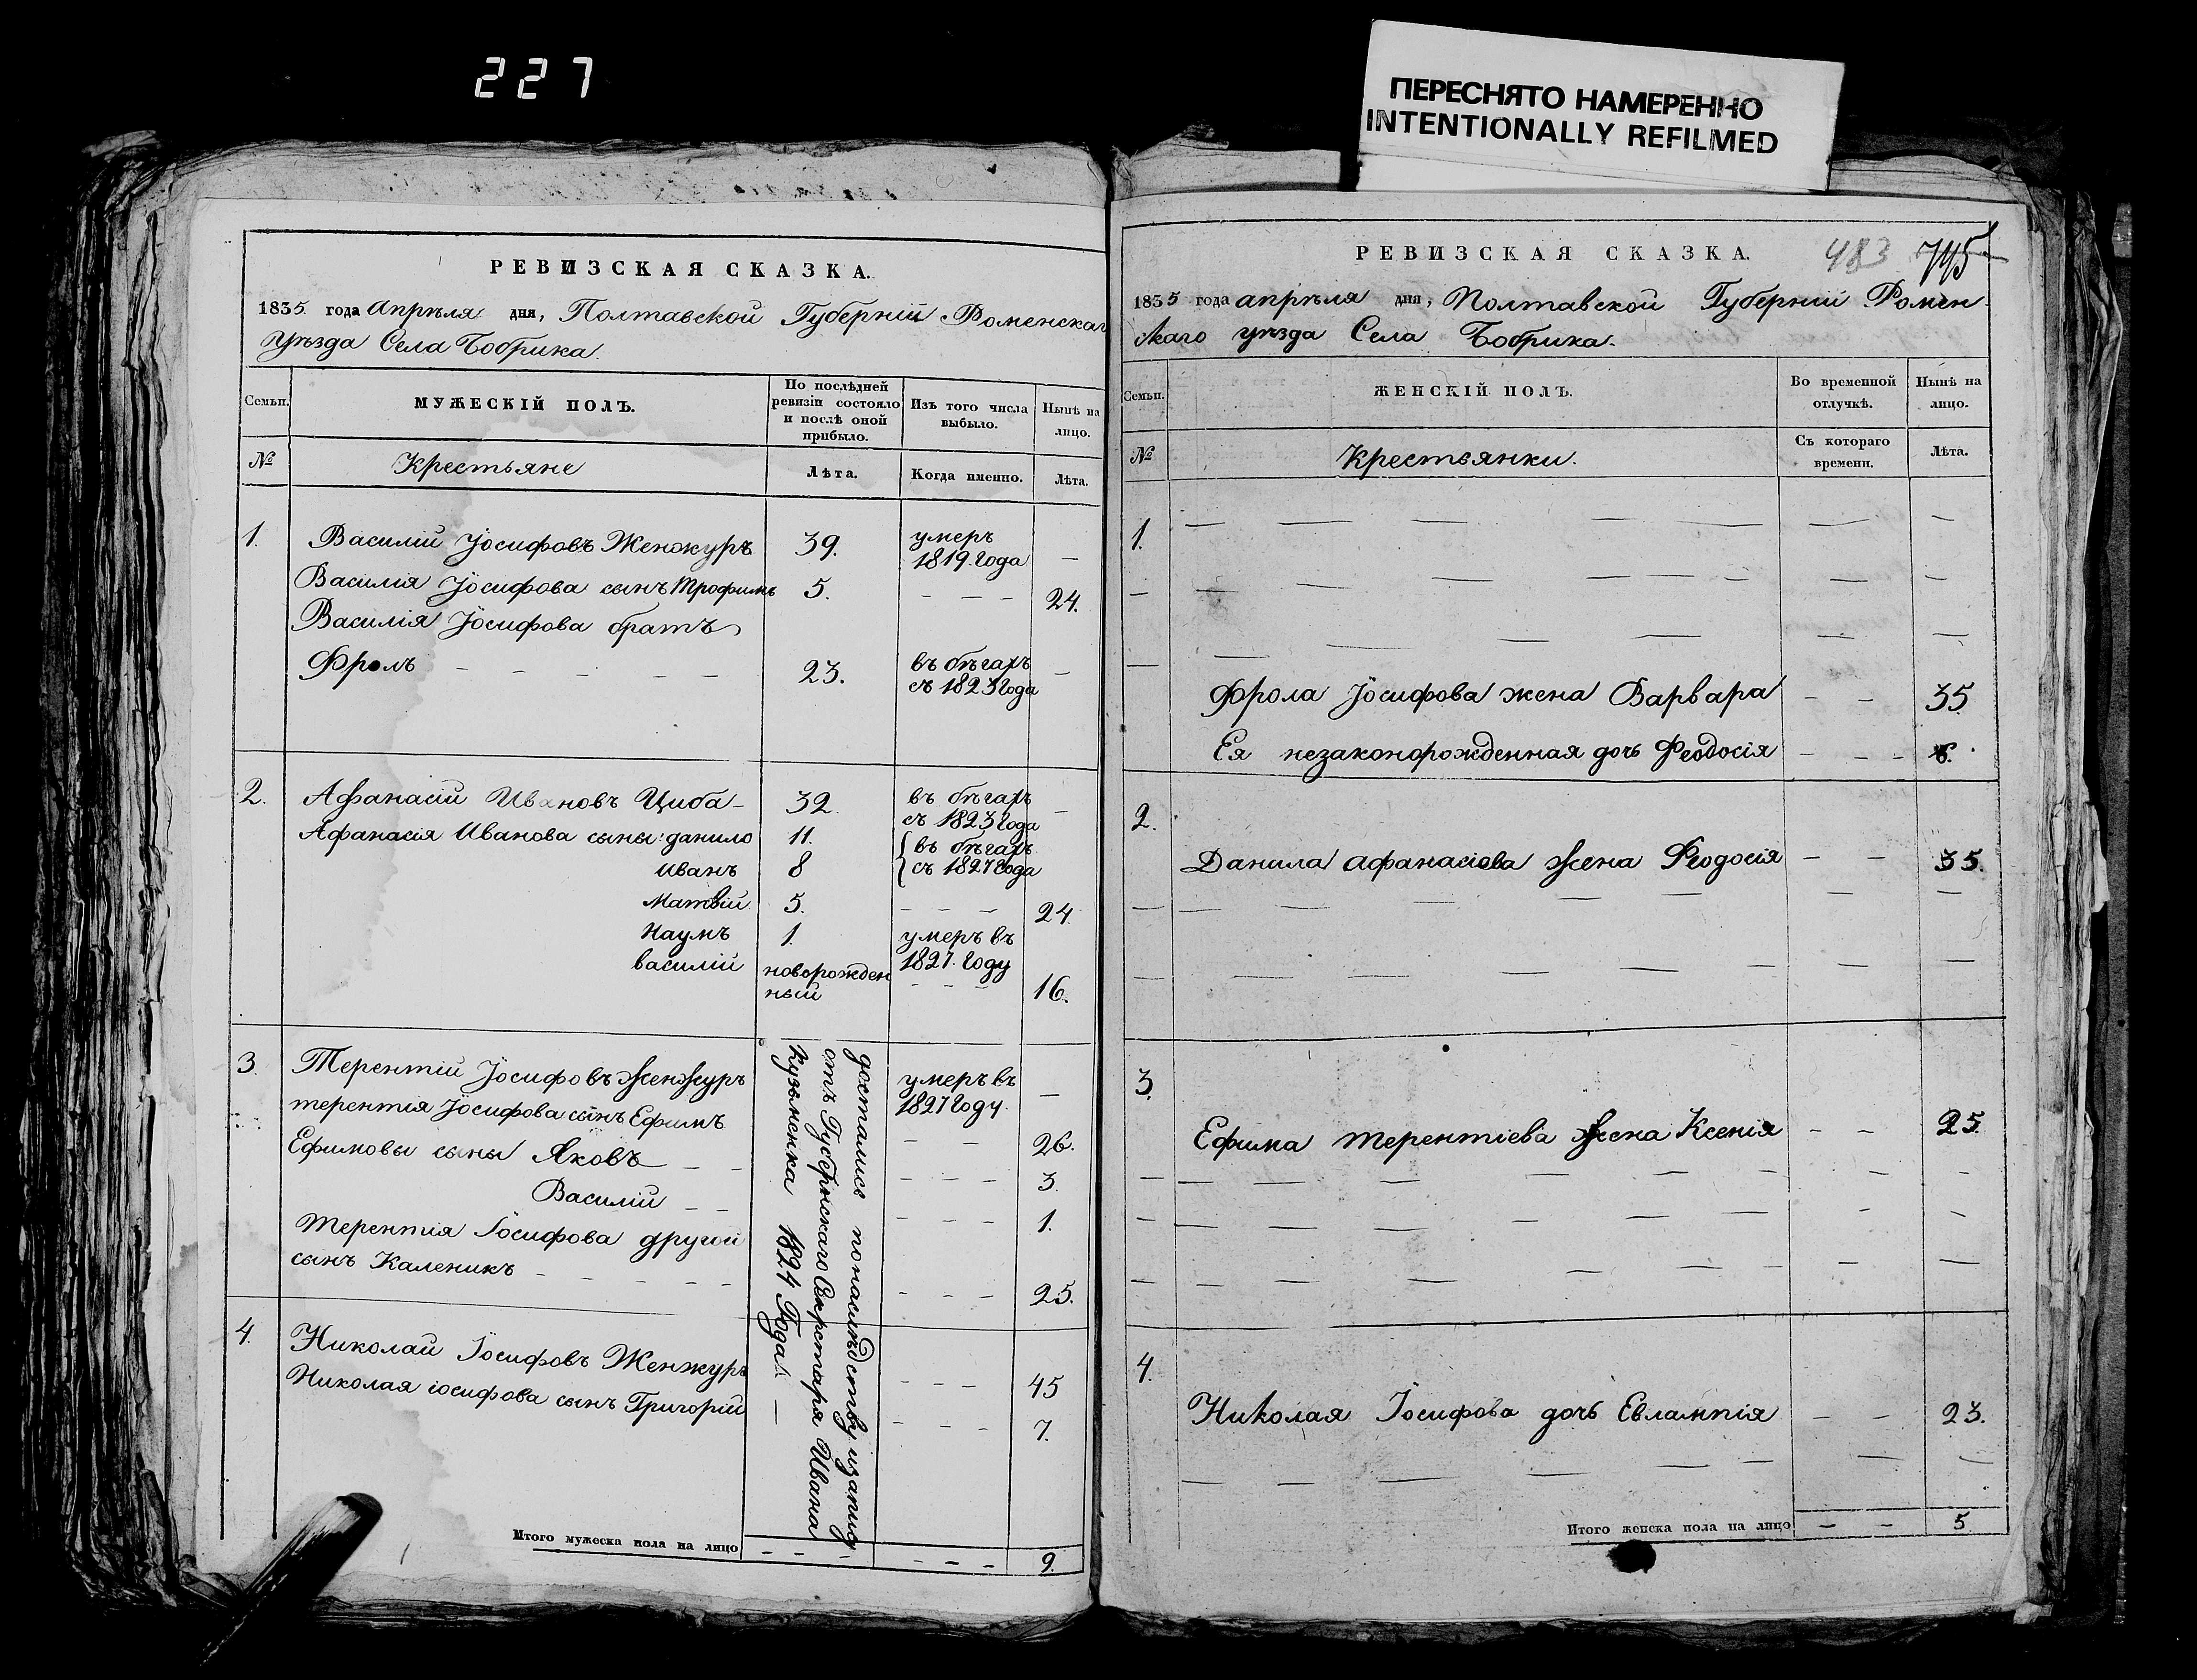 227
ПЕРЕСНЯТО НАМЕРЕННО
INTENTIONALLY REFILMED
РЕВИЗСКАЯ СКАЗКА.
1835 года Апрѣля дня, Полтавской Губерніи Роменскаг
Уѣзда Села Бобрика.
Семьи.
МУЖЕСКІЙ ПОЛЪ.
По послѣдней
ревизіи состояло
и послѣ оной
прибыло.
Изъ того числа
выбыло.
Нынѣ на
лицо.
№
Крестьяне
Лѣта.
Когда именно.
Лѣта.
1. Василій Іосифовъ Женжуръ 39. умеръ
1819. года —
Василія Іосифова сынъ Трофимъ 5. — — — 24.
Василія Іосифова братъ
Фролъ — — — — — 23. въ бѣгахъ —
съ 1823 года
2. Афанасій Ивановъ Циба — 32. въ бѣгахъ —
съ 1823 года
Афанасія Иванова сыны: данило 11. въ бѣгахъ
Иванъ 8 съ 1827 года
Матвій 5. — — — 24.
Наумъ 1. умеръ въ
1827. году
василій новорожден
ный — — — 16.
3. Терентій Іосифовъ Женжуръ умеръ въ —
1827 году.
терентія Іосифова сынъ Ефимъ — — 26.
Ефимовы сыны Яковъ — — — — — 3.
Василій — — — — — 1.
Терентія Іосифова другой
сынъ Каленикъ — — — — — — — — 25.
4. Николай Іосифовъ Женжуръ — — — 45
Николая іосифова сынъ Григорій — — — 7.
достались по наслѣдству изапису
отъ Губернскаго Секретаря Ивана
Кузьменка 1824 Года. —
Итого мужеска пола на лицо — — — — — — 9.
РЕВИЗСКАЯ СКАЗКА.
483 745
1835 года апрѣля дня, Полтавской Губерніи Ромен
скаго уѣзда Села Бобрика.
Семьи.
ЖЕНСКІЙ ПОЛЪ.
Во временной
отлучкѣ.
Нынѣ на
лицо.
№
Крестьянки.
Съ котораго
времени.
Лѣта.
1.
Фрола Іосифова жена Варвара — — 35
Ея незаконорожденная дочь Феодосія — — — 6.
2.
Данила Афанасіева жена Феодосія — — 35.
3.
Ефима терентіева жена Ксенія — — 25.
4.
Николая Іосифова дочь Евлампія — — 23.
Итого женска пола на лицо — — 5